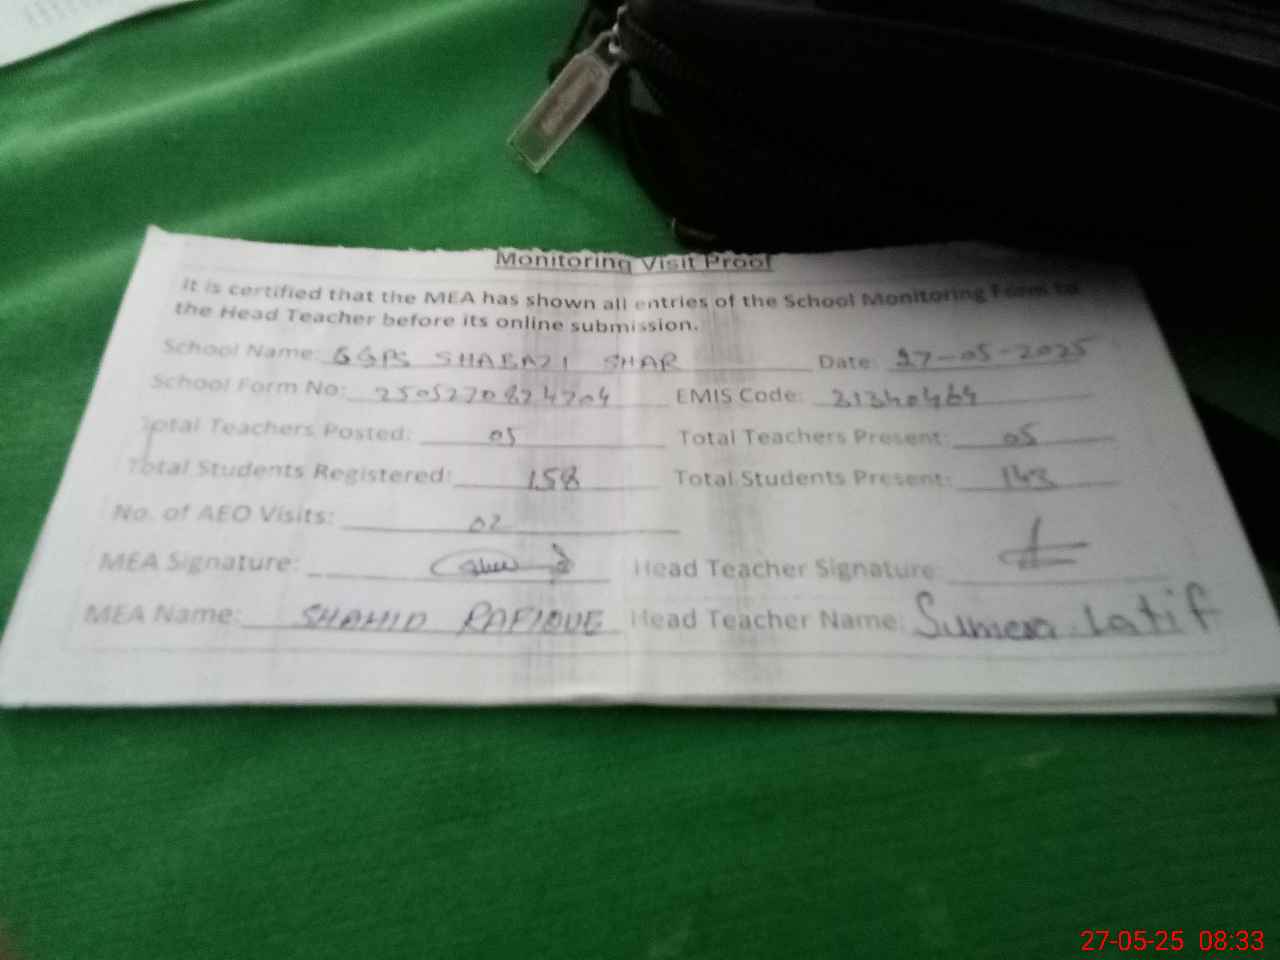 Monitoring Visit Proof
It is certified that the MEA has shown all entries of the School Monitoring Form to
the Head Teacher before its online submission.
School Name: GGPS SHABAZI SHAR Date: 27-05-2025
School Form No: 2505270824704 EMIS Code: 31340464
Total Teachers Posted: 05 Total Teachers Present: 05
Total Students Registered: 158 Total Students Present: 143
No. of AEO Visits: 02
MEA Signature: Head Teacher Signature:
MEA Name: SHAHID RAFIQUE Head Teacher Name: Sumera Latif
27-05-25 08:33